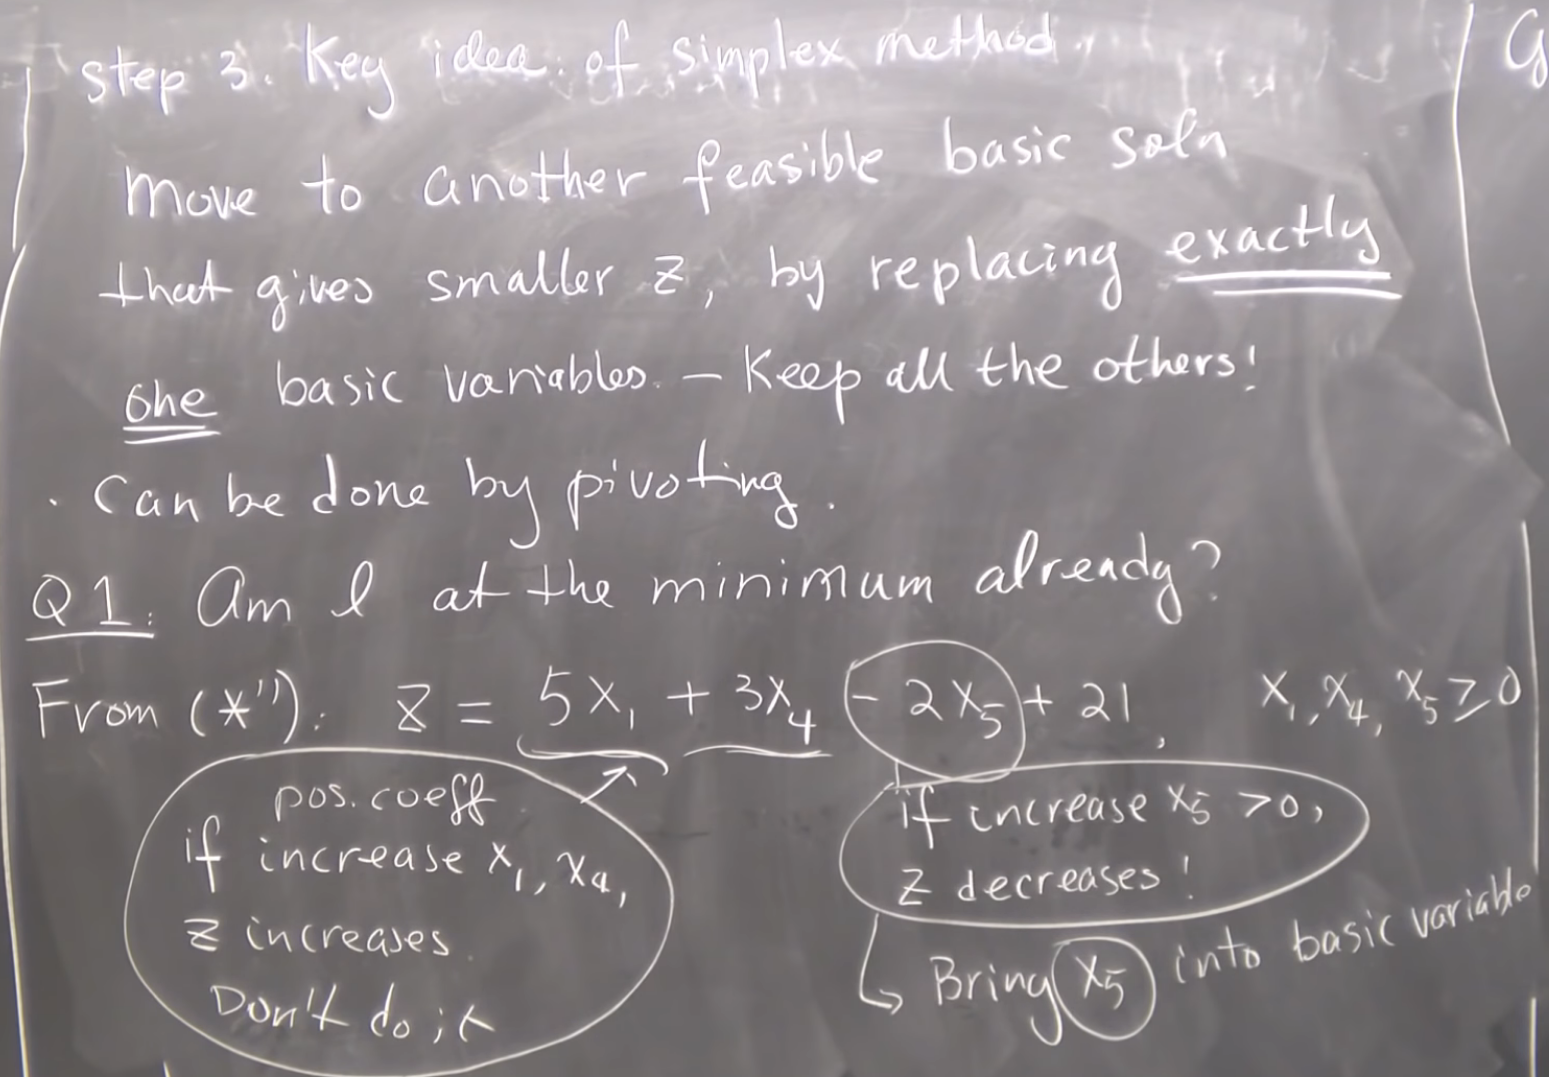 Step 3. Key idea of simplex method.
Move to another feasible basic soln
that gives smaller z, by replacing exactly
one basic variables. – Keep all the others!
· Can be done by pivoting.
Q1: Am I at the minimum already?
From (*''): z = 5x₁ + 3x₄ - 2x₅ + 21, x₁, x₄, x₅ ≥ 0
pos. coeff.
if increase x₁, x₄,
z increases.
Don't do it
if increase x₅ > 0,
z decreases!
↳ Bring x₅ into basic variable
G